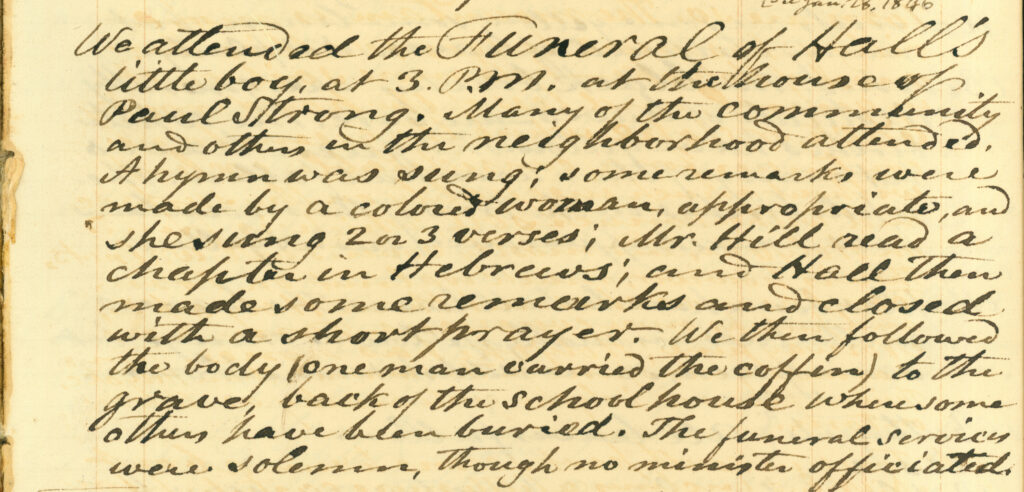 Jan. 28, 1846
We attended the Funeral of Hall's
little boy, at 3. P.M. at the house of
Paul Strong. Many of the community
and others in the neighborhood attended.
A hymn was sung; some remarks were
made by a colored woman, appropriate, and
she sung 2 or 3 verses; Mr. Hill read a
chapter in Hebrews; and Hall then
made some remarks and closed
with a short prayer. We then followed
the body (one man carried the coffin) to the
grave, back of the school house where some
others have been buried. The funeral services
were solemn, though no minister officiated.